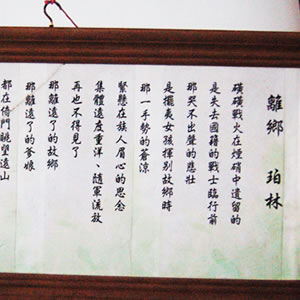 離鄉　珀林
磺磺戰火在煙硝中遺留的
是失去國籍的戰士臨行前
那哭不出聲的悲壯
是擺夷女孩揮別故鄉時
那一手勢的蒼涼
緊懸在族人眉心的思念
集體遠度重洋、隨軍流放
再也不得見了
那離遠了的故鄉
那離遠了的爹娘
都在倚門眺望遠山